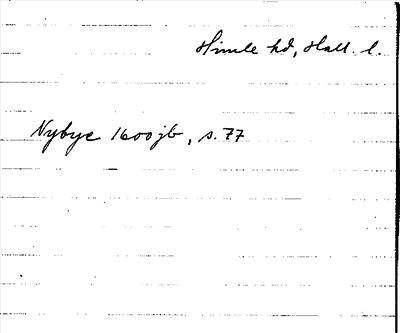 Himle hd, Hall. l.
Nybye 1600jb, s. 77